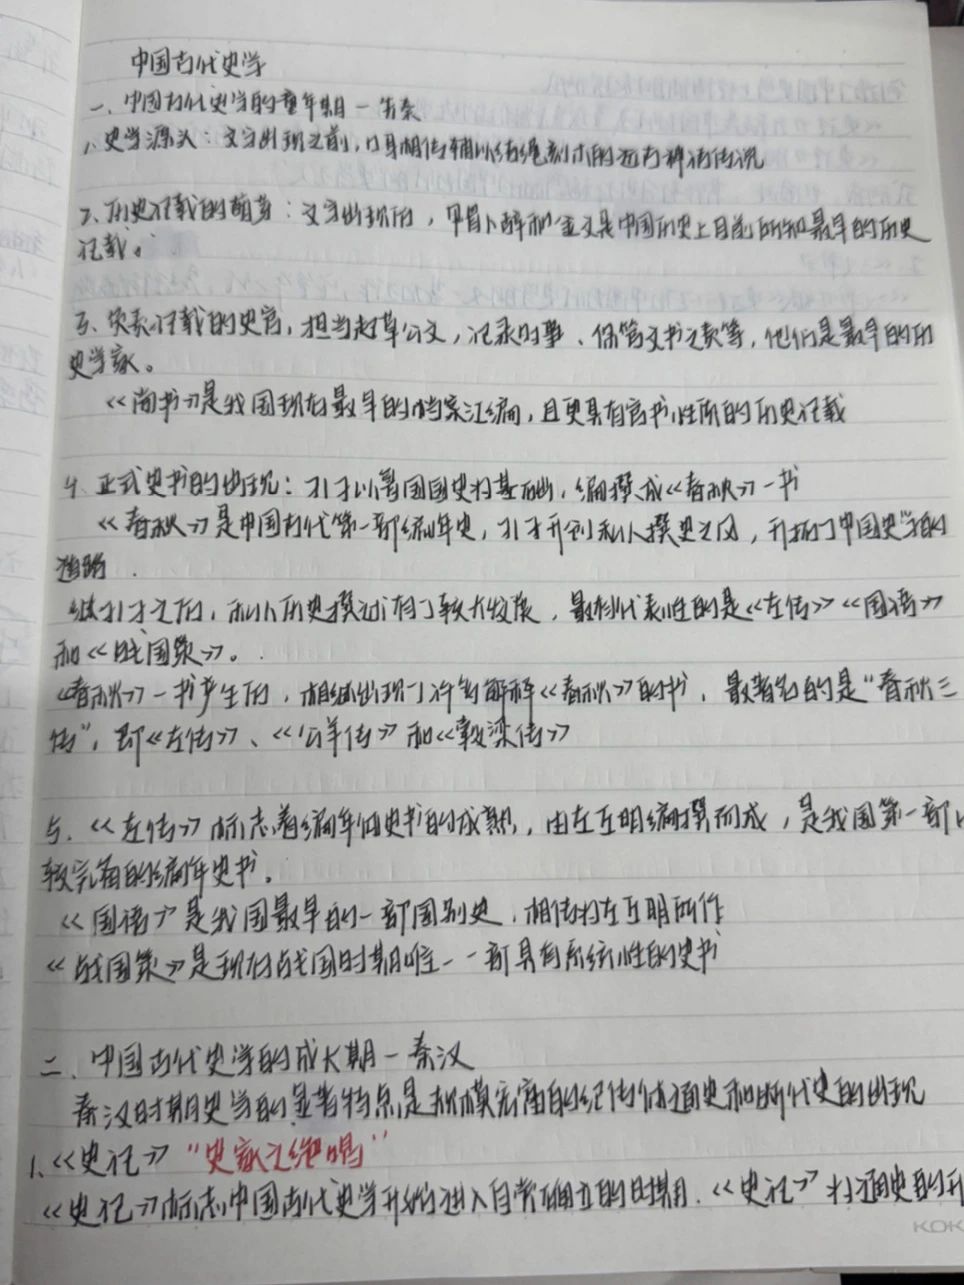 中国古代史学
一、中国古代史学的童年期 — 先秦
1、史学源头：文字出现之前，口耳相传辅以结绳刻木的远古神话传说
2、历史记载的萌芽：文字出现后，甲骨卜辞和金文是中国历史上目前所知最早的历史
记载。
3、负责记载的史官，担当起草公文，记录时事、保管文书之责等，他们是最早的历
史学家。
《尚书》是我国现存最早的档案汇编，且更具有官书性质的历史记载
4、正式史书的出现：孔子以鲁国国史为基础，编撰成《春秋》一书
《春秋》是中国古代第一部编年史，孔子开创私人撰史之风，开拓了中国史学的
道路.
继孔子之后，私人历史撰述有了较大发展，最有代表性的是《左传》《国语》
和《战国策》。
《春秋》一书产生后，相继出现了许多解释《春秋》的书，最著名的是“春秋三
传”，即《左传》、《公羊传》和《榖梁传》
5、《左传》标志着编年体史书的成熟，由左丘明编撰而成，是我国第一部
较完备的编年史书。
《国语》是我国最早的一部国别史，相传为左丘明所作
《战国策》是现存战国时期唯一一部具有系统性的史书
二、中国古代史学的成长期 — 秦汉
秦汉时期史学的显著特点是规模宏富的纪传体通史和断代史的出现
1、《史记》“史家之绝唱”
《史记》标志中国古代史学开始进入自觉确立的时期.《史记》为通史的开
KOK